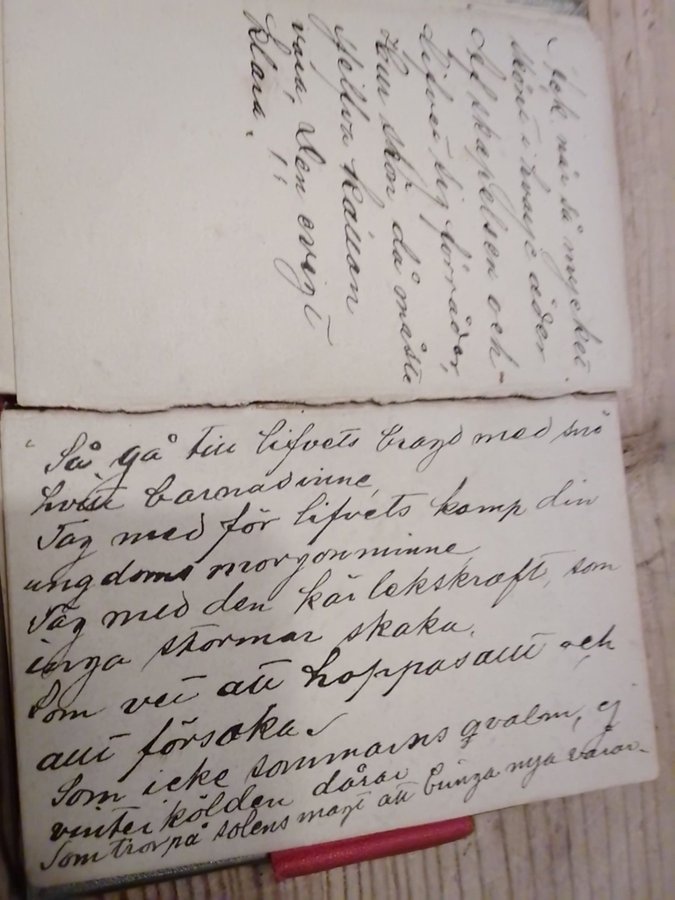 Ack, när så mycket
skönt i hvarje åder
Af skapelsen och
lifvet sig förråder,
Hur skön då måste
sjelfva källan
vara, Den evigt
klara.!!
"Så gå till lifvets bragd med snö
hvitt barnasinne,
Tag med för lifvets kamp din
ungdoms morgonminne,
Tag med den kärlekskraft, som
inga stormar skaka.
Som vet att hoppas allt och
allt försaka.
Som icke sommarns qvalm, ej
vinterkölden dårar
Som tror på solens magt att bringa nya vårar.